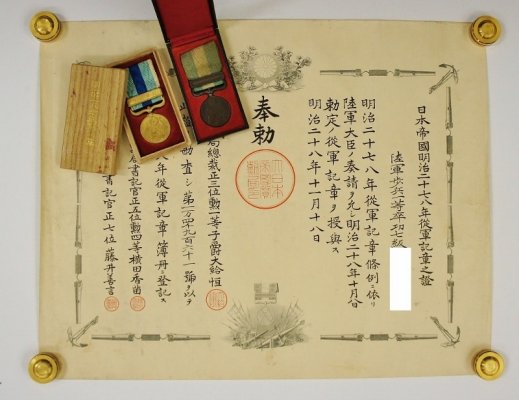 日本帝國明治二十七八年從軍記章之證
陸軍歩兵一等卒功七級
明治二十七八年從軍記章條例ニ依リ
陸軍大臣ノ奏請ヲ允シ明治二十八年十月九日
勅定ノ從軍記章ヲ授與ス
明治二十八年十一月十八日
奉勅
局總裁正三位勲一等子爵大給恒
勘査シ第一万四千九百六十一號ヲ以テ
八年從軍記章簿册ニ登記ス
書記官正五位勲四等横田香苗
書記官正七位藤井善言